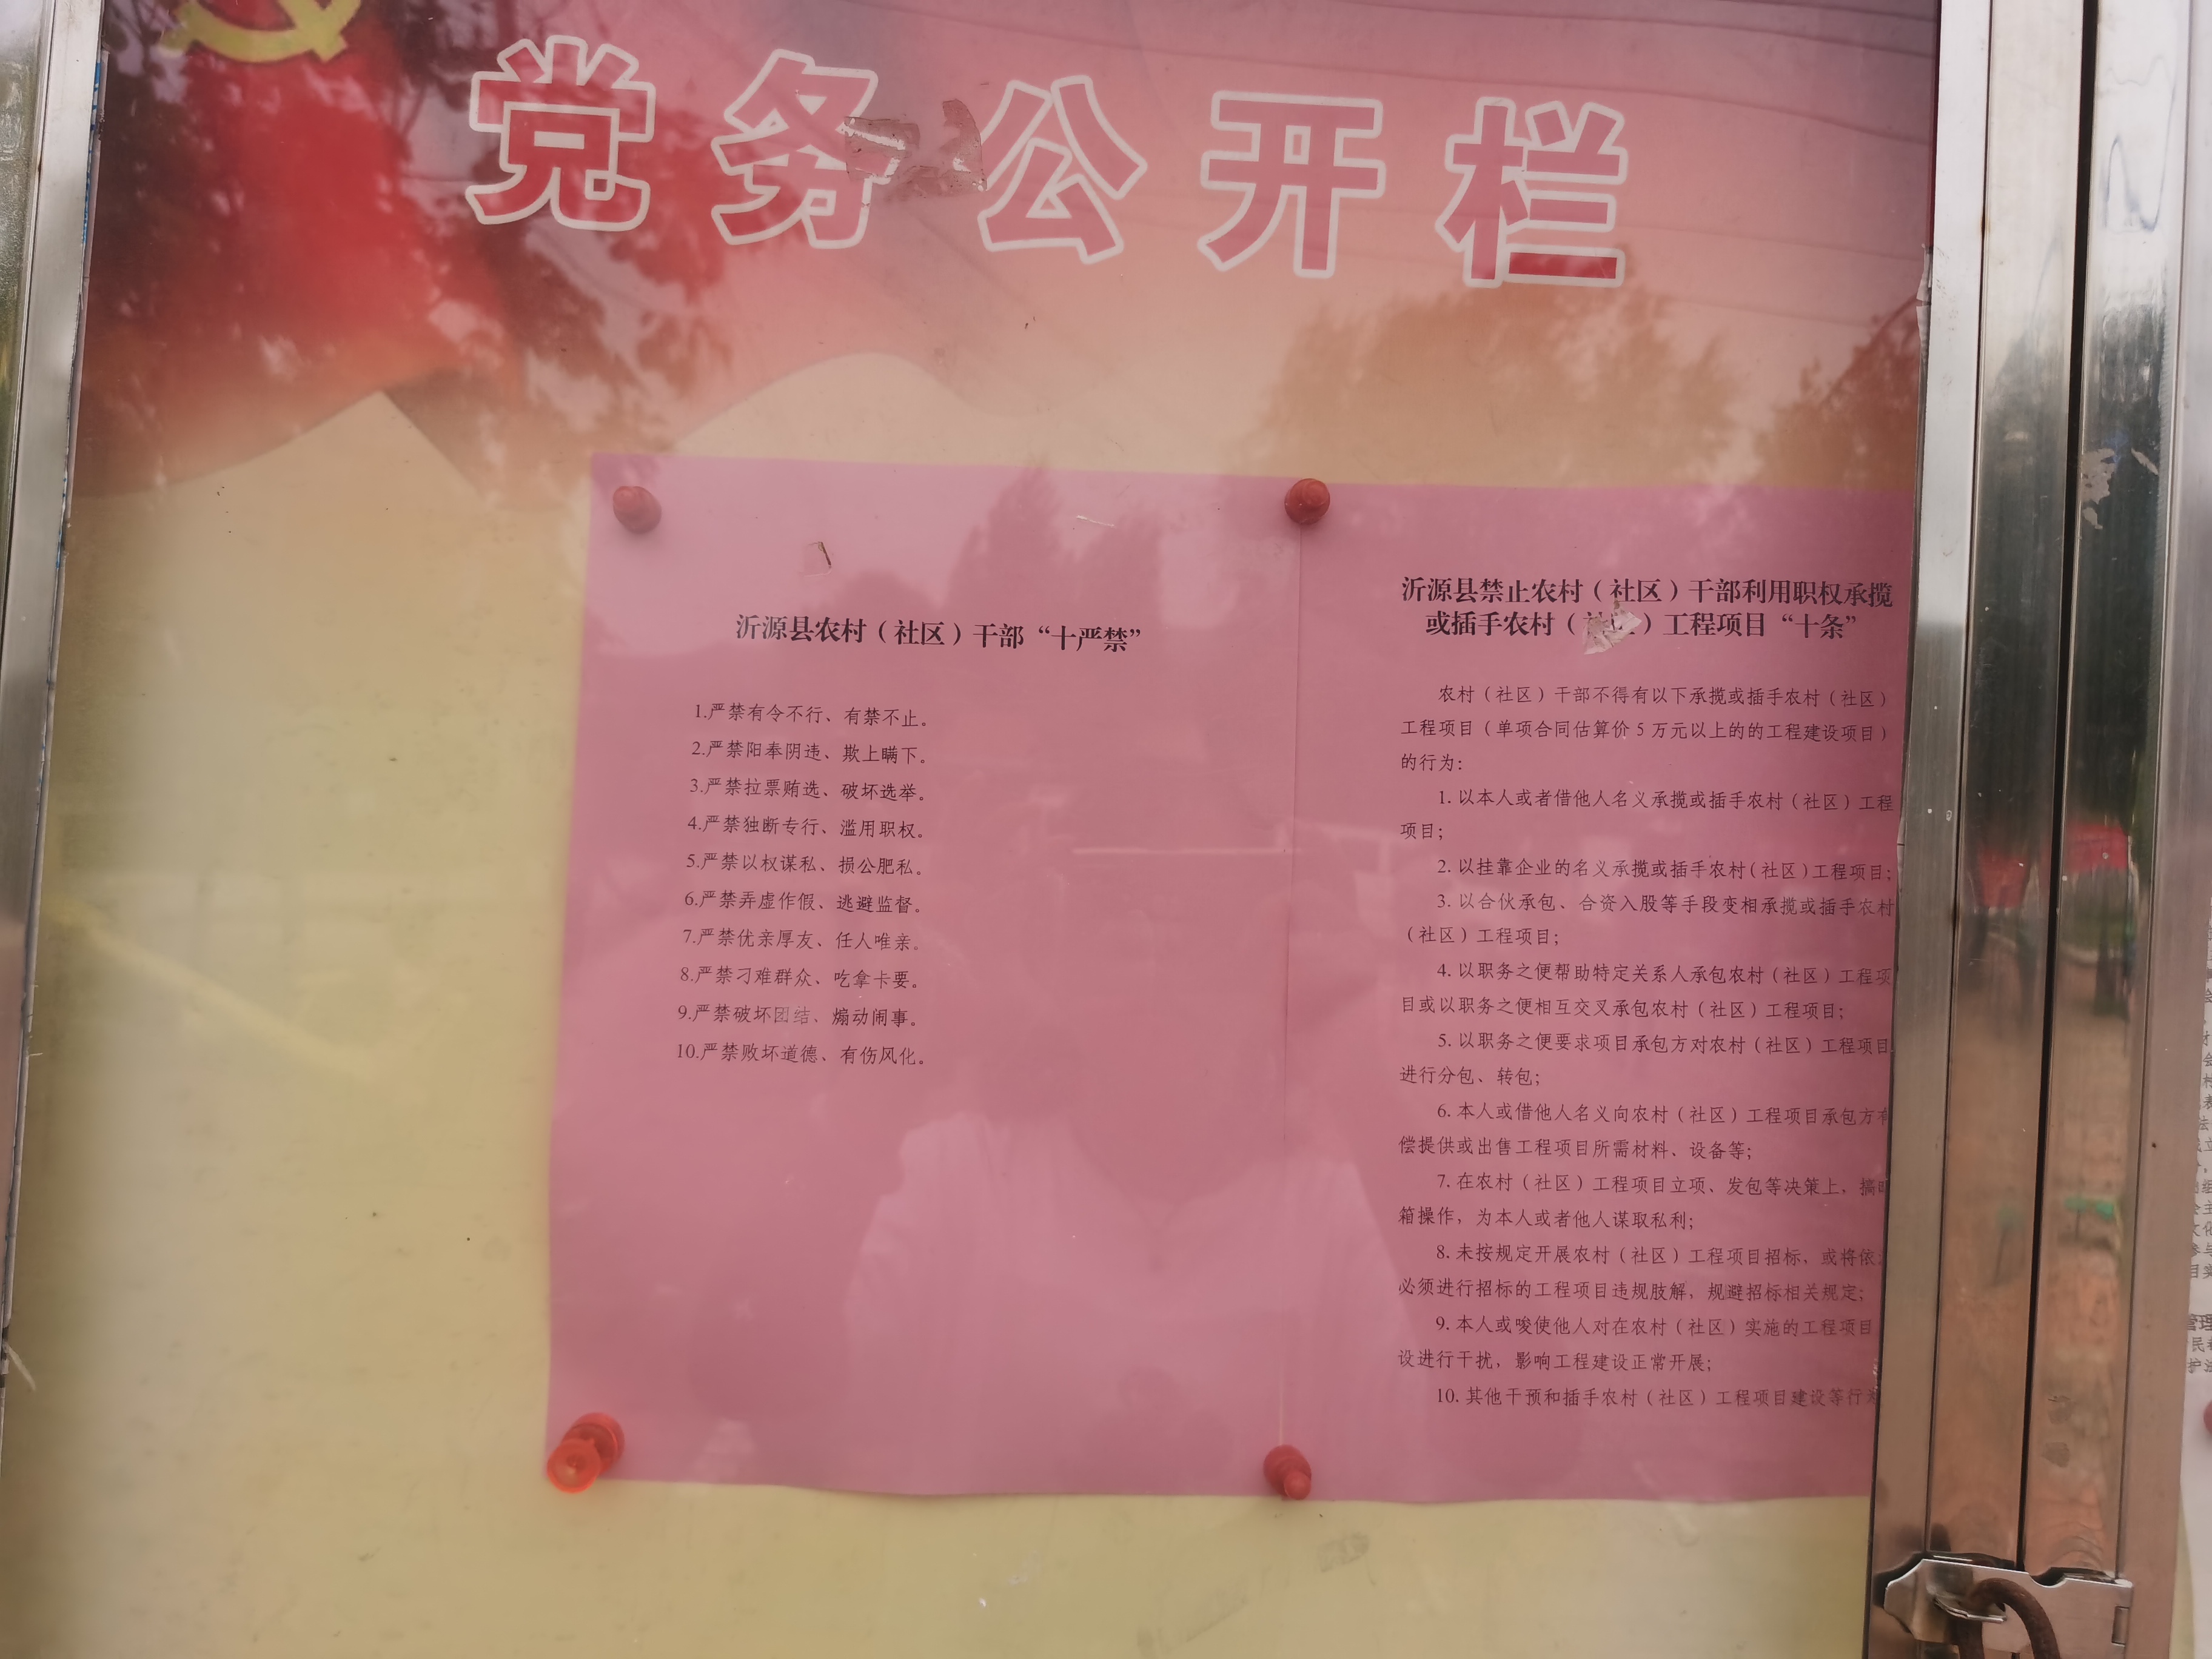 党务公开栏
沂源县农村（社区）干部“十严禁”
1.严禁有令不行、有禁不止。
2.严禁阳奉阴违、欺上瞒下。
3.严禁拉票贿选、破坏选举。
4.严禁独断专行、滥用职权。
5.严禁以权谋私、损公肥私。
6.严禁弄虚作假、逃避监督。
7.严禁优亲厚友、任人唯亲。
8.严禁刁难群众、吃拿卡要。
9.严禁破坏团结、煽动闹事。
10.严禁败坏道德、有伤风化。
沂源县禁止农村（社区）干部利用职权承揽
或插手农村（社区）工程项目“十条”
农村（社区）干部不得有以下承揽或插手农村（社区）
工程项目（单项合同估算价5万元以上的的工程建设项目）
的行为：
1. 以本人或者借他人名义承揽或插手农村（社区）工程
项目；
2. 以挂靠企业的名义承揽或插手农村（社区）工程项目；
3. 以合伙承包、合资入股等手段变相承揽或插手农村
（社区）工程项目；
4. 以职务之便帮助特定关系人承包农村（社区）工程项
目或以职务之便相互交叉承包农村（社区）工程项目；
5. 以职务之便要求项目承包方对农村（社区）工程项目
进行分包、转包；
6. 本人或借他人名义向农村（社区）工程项目承包方有
偿提供或出售工程项目所需材料、设备等；
7. 在农村（社区）工程项目立项、发包等决策上，搞
箱操作，为本人或者他人谋取私利；
8. 未按规定开展农村（社区）工程项目招标，或将依
必须进行招标的工程项目违规肢解，规避招标相关规定；
9. 本人或唆使他人对在农村（社区）实施的工程项目
设进行干扰，影响工程建设正常开展；
10. 其他干预和插手农村（社区）工程项目建设等行